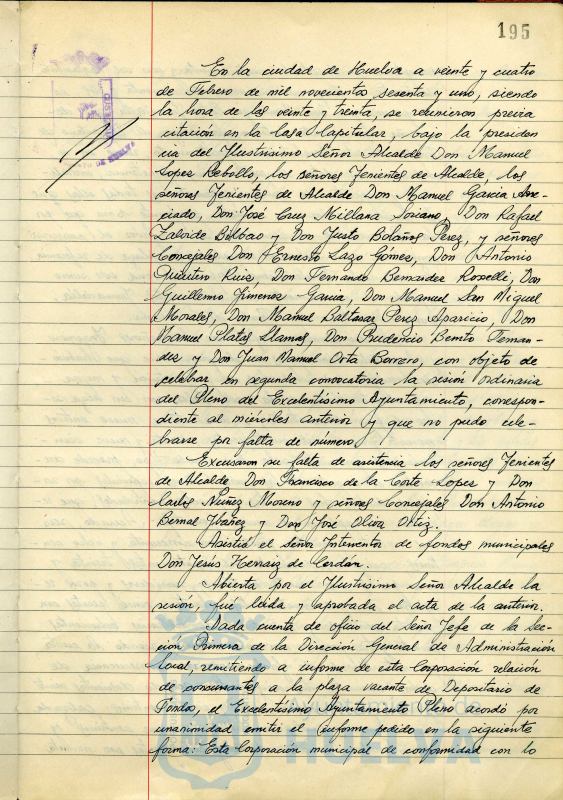 195
En la ciudad de Huelva a veinte y cuatro
de Febrero de mil novecientos sesenta y uno, siendo
la hora de las veinte y treinta, se reunieron previa
citación en la Casa Capitular, bajo la presiden
cia del Ilustrisimo Señor Alcalde Don Manuel
Lopez Rebollo, los señores Tenientes de Alcalde, los
señores Tenientes de Alcalde Don Manuel Garcia
ciado, Don José Cruz Millana Soriano, Don Rafael
Bilbao y Don Justo Bolaños Perez, y señores
Concejales Don Ernesto Lazo Gómez, Don Antonio
Quintero Ruiz, Don Fernando Bernardez Rosselli, Don
Guillermo Jimenez Garcia, Don Manuel San Miguel
Morales, Don Manuel Baltasar Perez Aparicio, Don
Manuel Platas Llamas, Don Prudencio Benito Fernan-
dez y Don Juan Manuel Orta Borrero, con objeto de
celebrar en segunda convocatoria la sesión ordinaria
del Pleno del Excelentísimo Ayuntamiento, correspon-
diente al miércoles anterior y que no pudo cele-
brarse por falta de número.
Excusaron su falta de asistencia los señores Tenientes
de Alcalde Don Francisco de la Corte Lopez y Don
Carlos Nuñez Moreno y señores Concejales Don Antonio
Bernal Ibañez y Don José Oliva Ortiz.
Asistió el señor Interventor de fondos municipales
Don Jesus Herraiz de Cerdán.
Abierta por el Ilustrisimo Señor Alcalde la
sesión, fué leida y aprobada el acta de la anterior.
Dada cuenta de oficio del Señor Jefe de la Sec-
ción Primera de la Dirección General de Administración
Local, remitiendo a informe de esta Corporación relación
de concursantes a la plaza vacante de Depositario de
Fondos, el Excelentísimo Ayuntamiento Pleno acordó por
unanimidad emitir el informe pedido en la siguiente
forma: Esta Corporación municipal de conformidad con lo
HUELVA